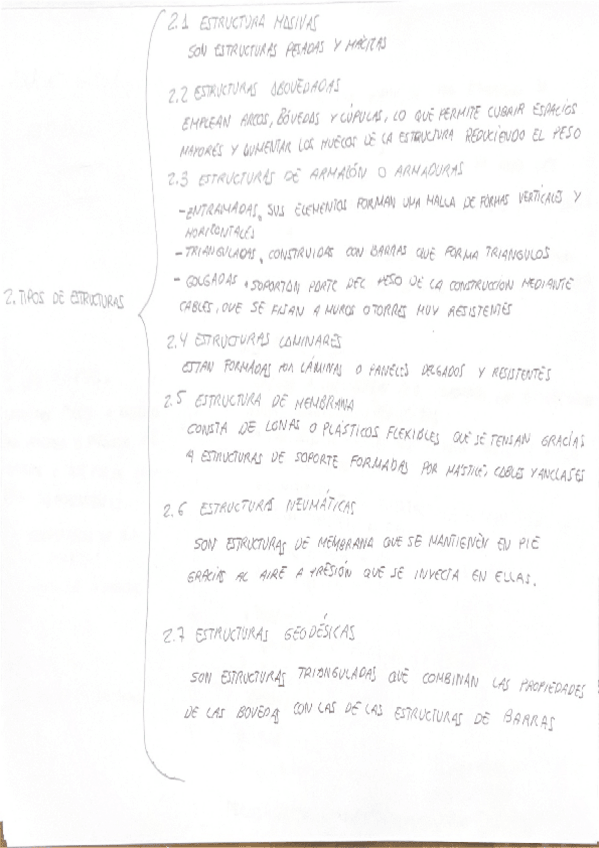 2.1 ESTRUCTURA MASIVAS
SON ESTRUCTURAS PESADAS Y MACITAS
2.2 ESTRUCTURAS ABOVEDADAS
EMPLEAN ARCOS, BÓVEDAS Y CÚPULAS, LO QUE PERMITE CUBRIR ESPACIOS
MAYORES Y AUMENTAR LOS HUECOS DE LA ESTRUCTURA REDUCIENDO EL PESO
2.3 ESTRUCTURAS DE ARMAZÓN O ARMADURAS
- ENTRAMADAS, SUS ELEMENTOS FORMAN UNA MALLA DE FORMAS VERTICALES Y
HORIZONTALES
- TRIANGULADAS, CONSTRUIDAS CON BARRAS QUE FORMA TRIANGULOS
- COLGADAS, SOPORTAN PARTE DEL PESO DE LA CONSTRUCCION MEDIANTE
CABLES, QUE SE FIJAN A MUROS O TORRES MUY RESISTENTES
2. TIPOS DE ESTRUCTURAS
2.4 ESTRUCTURAS LAMINARES
ESTAN FORMADAS POR LÁMINAS O PANELES DELGADOS Y RESISTENTES
2.5 ESTRUCTURA DE MEMBRANA
CONSTA DE LONAS O PLÁSTICOS FLEXIBLES QUE SE TENSAN GRACIAS
A ESTRUCTURAS DE SOPORTE FORMADAS POR MASTILES, CABLES Y ANCLASES
2.6 ESTRUCTURAS NEUMÁTICAS
SON ESTRUCTURAS DE MEMBRANA QUE SE MANTIENEN EN PIE
GRACIAS AL AIRE A PRESIÓN QUE SE INYECTA EN ELLAS.
2.7 ESTRUCTURAS GEODÉSICAS
SON ESTRUCTURAS TRIANGULADAS QUE COMBINAN LAS PROPIEDADES
DE LAS BOVEDAS CON LAS DE LAS ESTRUCTURAS DE BARRAS